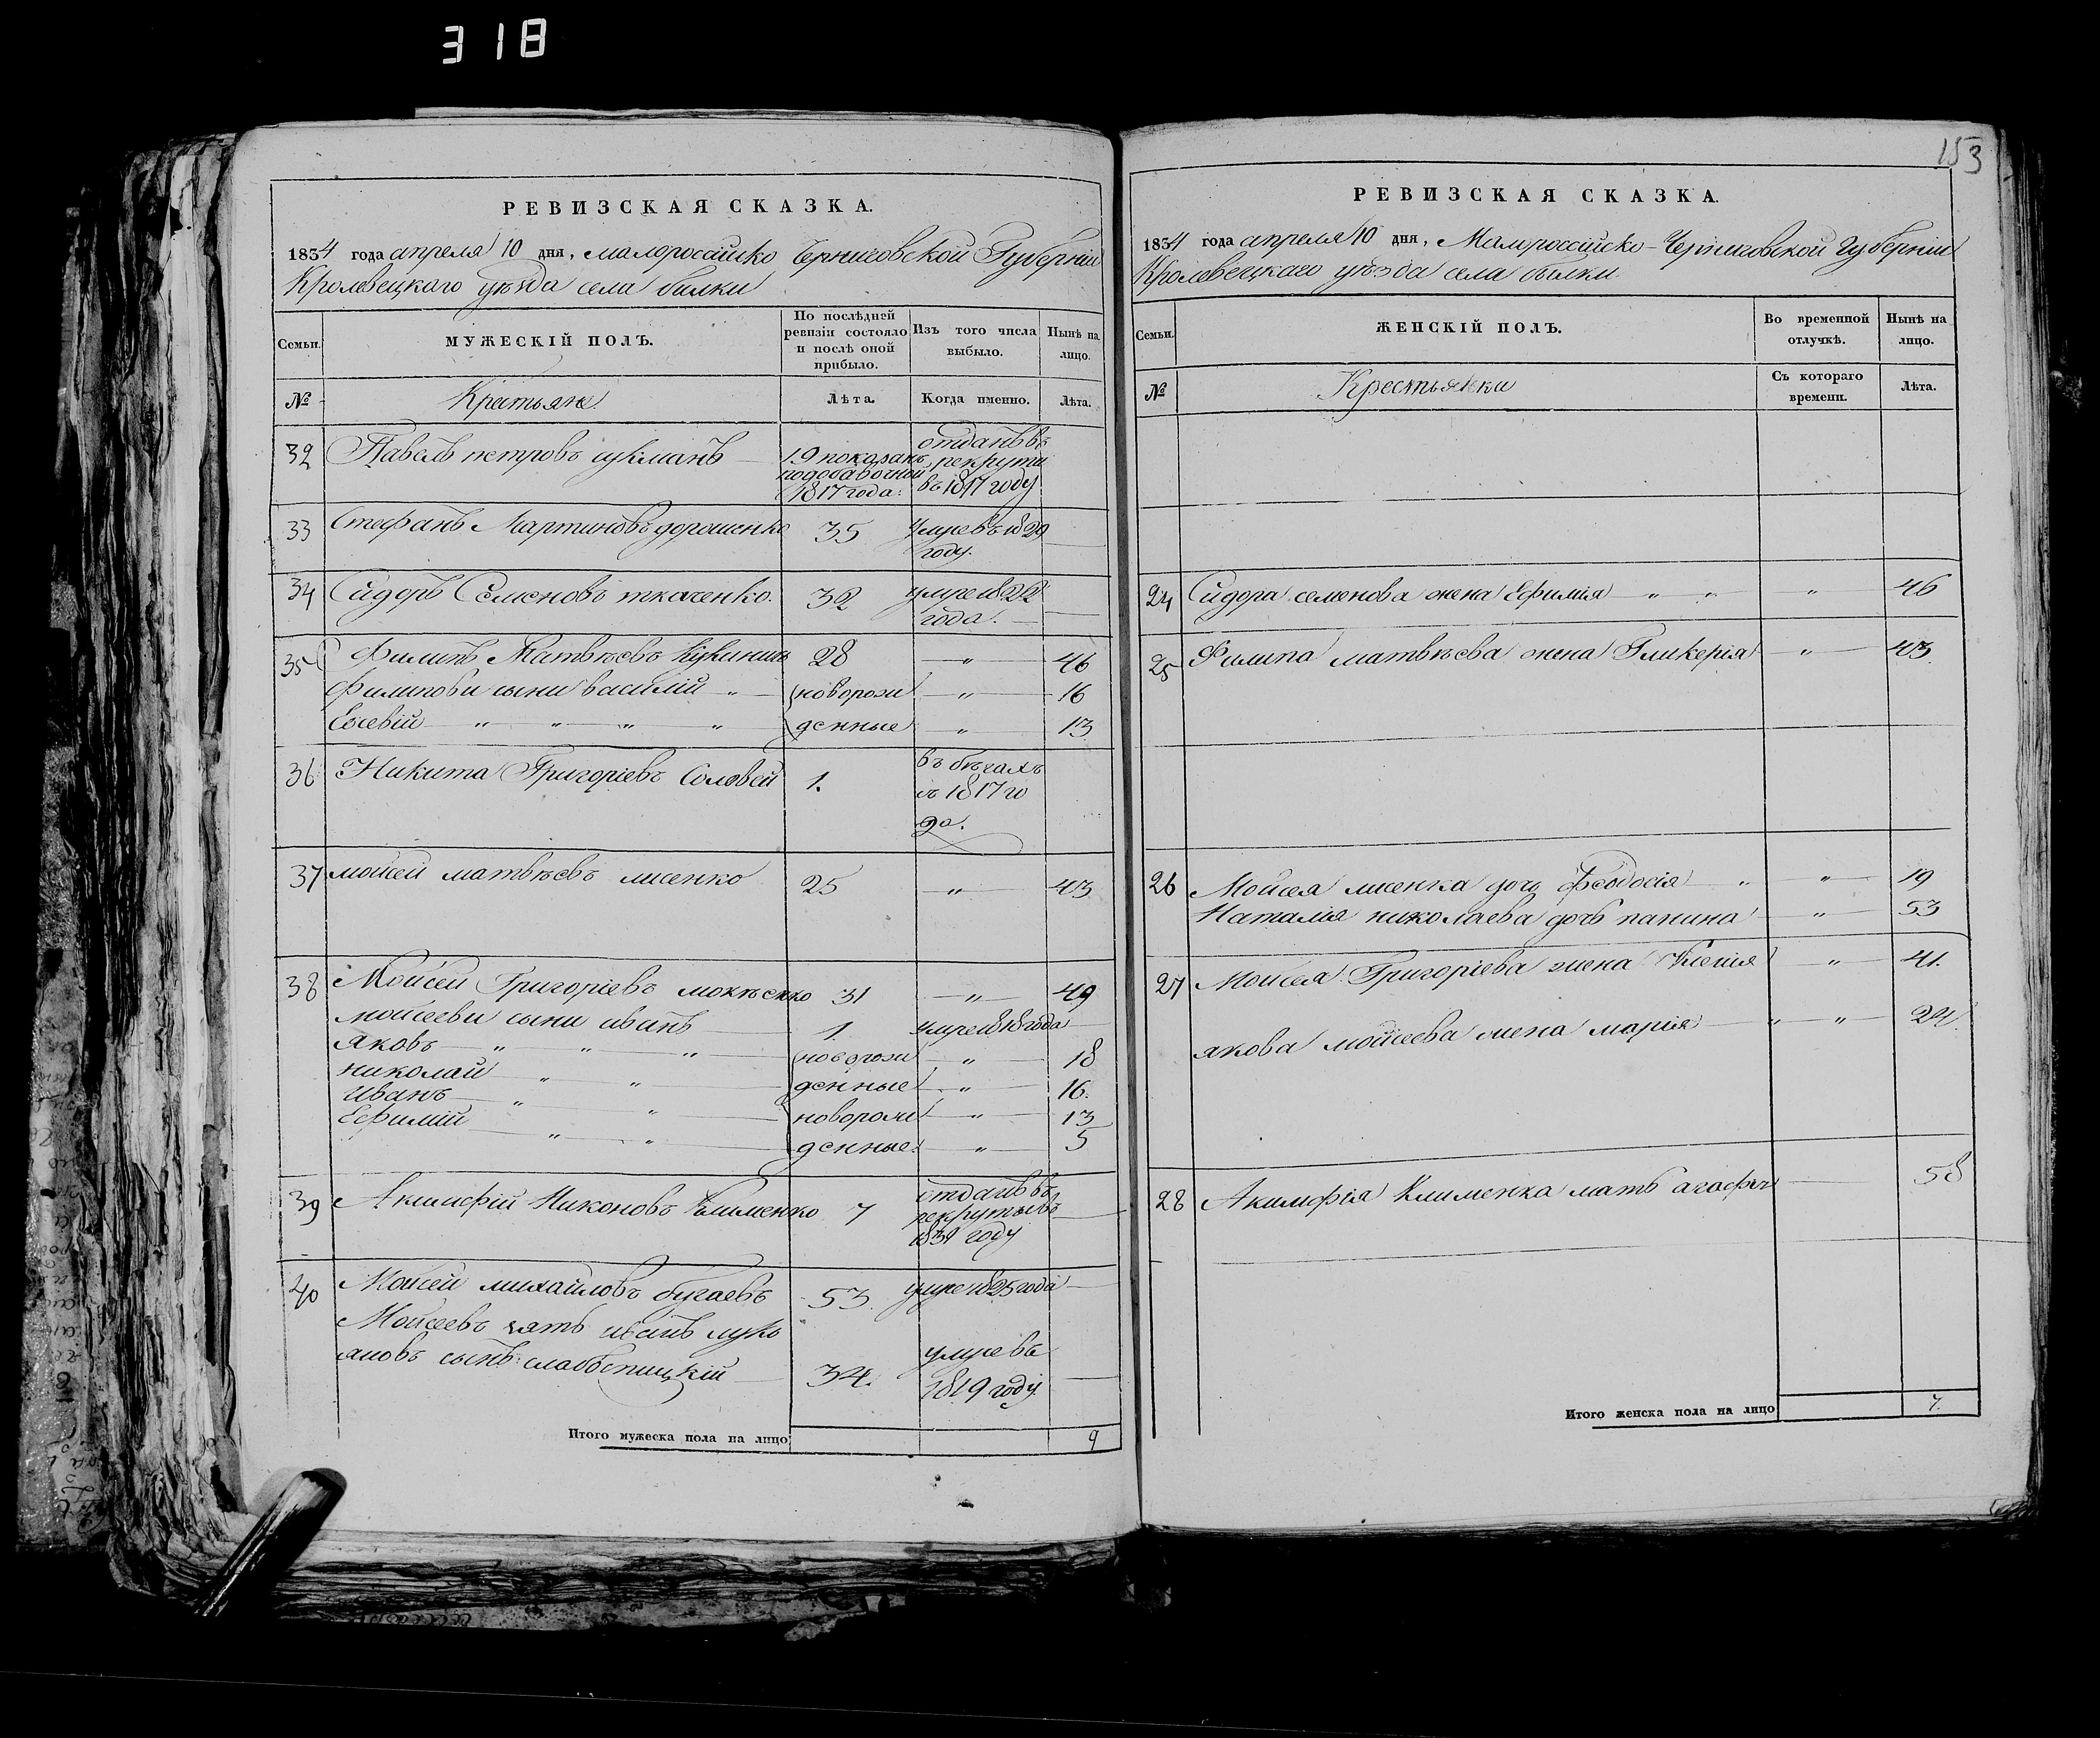 318
РЕВИЗСКАЯ СКАЗКА.
1834 года апреля 10 дня, малоросайско Черниговской Губерніи
Кролевецкаго уѣзда села билки
Семьи.
МУЖЕСКІЙ ПОЛЪ.
По послѣдней ревизіи состояло и послѣ оной прибыло.
Изъ того числа выбыло.
Нынѣ на лицо.
№
Крестьяне.
Лѣта.
Когда именно.
Лѣта.
32 Павелъ петровъ 19 показанъ отданъ въ рекрути
подобавочной
1817 года: въ 1817 году
33 Стефанъ Мартиновъ дорошенко 35 Умре въ 1829
году.
34 Сидоръ Семеновъ ткаченко. 32 умре 1822
года.
35 Филипъ Матвѣевъ 28 — „ — 46
Филипови сыни василій „ новорож — „ — 16
Евсевій „ „ „ „ денные „ 13
36 Никита Григоріевъ Соловей 1. въ бѣгахъ
съ 1817 го
да.
37 мойсей матвѣевъ лисенко 25 — „ — 43
38 Мойсей Григоріевъ 31 — „ — 49
мойсееви сыни иванъ 1. умре 1818 года
яковъ „ „ „ новорож „ 18
николай „ „ денные „ 16.
Иванъ „ „ новорож „ 13
Ефимій „ „ денные. „ 5
39 Акимфій Никоновъ Клименко 7 отданъ въ
рекруты въ
1831 году
40 Мойсей михайловъ бугаевъ 53. умре 1825 года
Мойсеевъ зять иванъ лукь
яновъ сынъ 34. умре въ
1819 году.
Итого мужеска пола на лицо 9
153
РЕВИЗСКАЯ СКАЗКА.
1834 года апреля 10 дня, Малоросайско-Черниговской Губерніи
Кролевецкаго уѣзда села билки
Семьи.
ЖЕНСКІЙ ПОЛЪ.
Во временной отлучкѣ.
Нынѣ на лицо.
№
Крестьянки
Съ котораго времени.
Лѣта.
24 Сидора семенова жена Ефимія „ „ „ 46
25 Филипа матвѣева жена Гликерія „ 43.
26 Мойсея лисенка дочь феодосія „ „ 19
Наталія николаева дочь панина „ 53
27 Мойсея Григоріева жена Ксенія „ 41.
якова мойсеева жена марія „ „ 24.
28 Акимфія Клименка мать агафія 58
Итого женска пола на лицо 7.